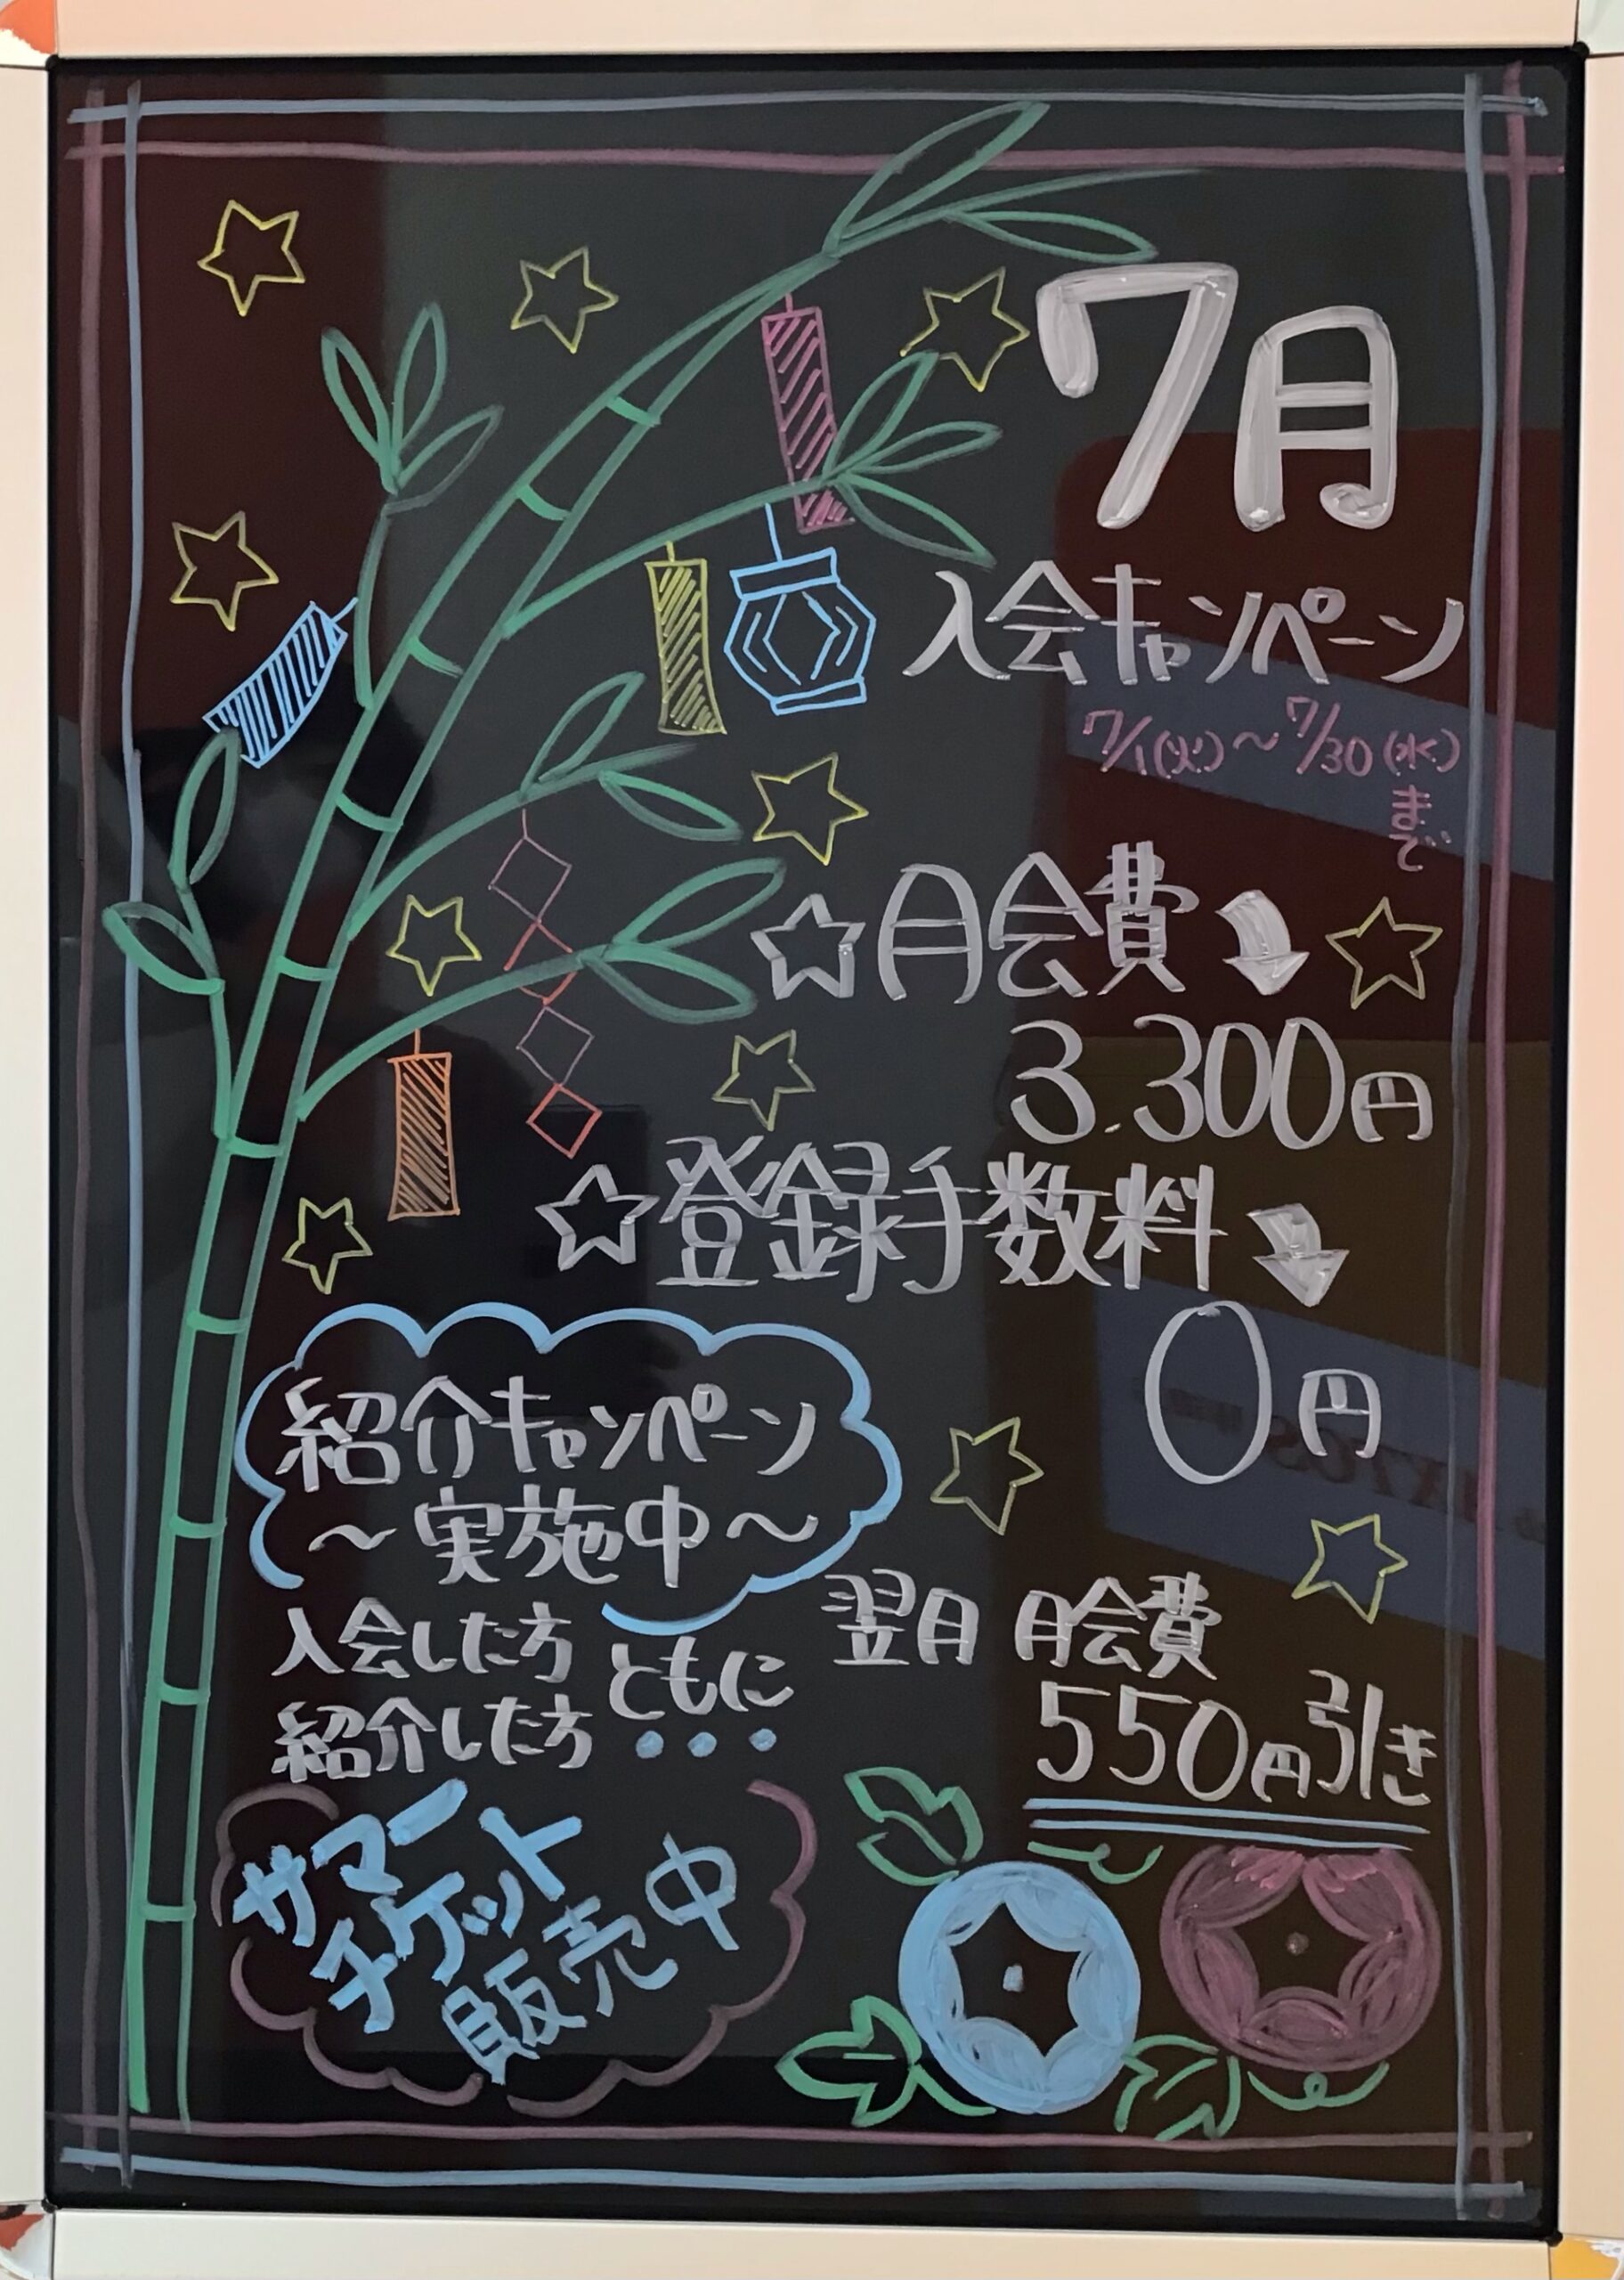 7月
入会キャンペーン
7/1(火)～7/30(水)
まで
☆月会費
3.300円
☆登録手数料
0円
紹介キャンペーン
～実施中～
入会した方
紹介した方
ともに
翌月 月会費
550円引き
サマー
チケット
販売中